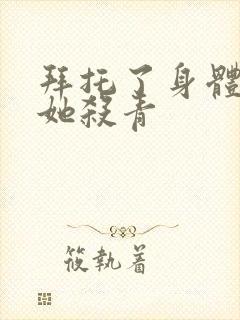 拜托了身體
她殺青
筱執着